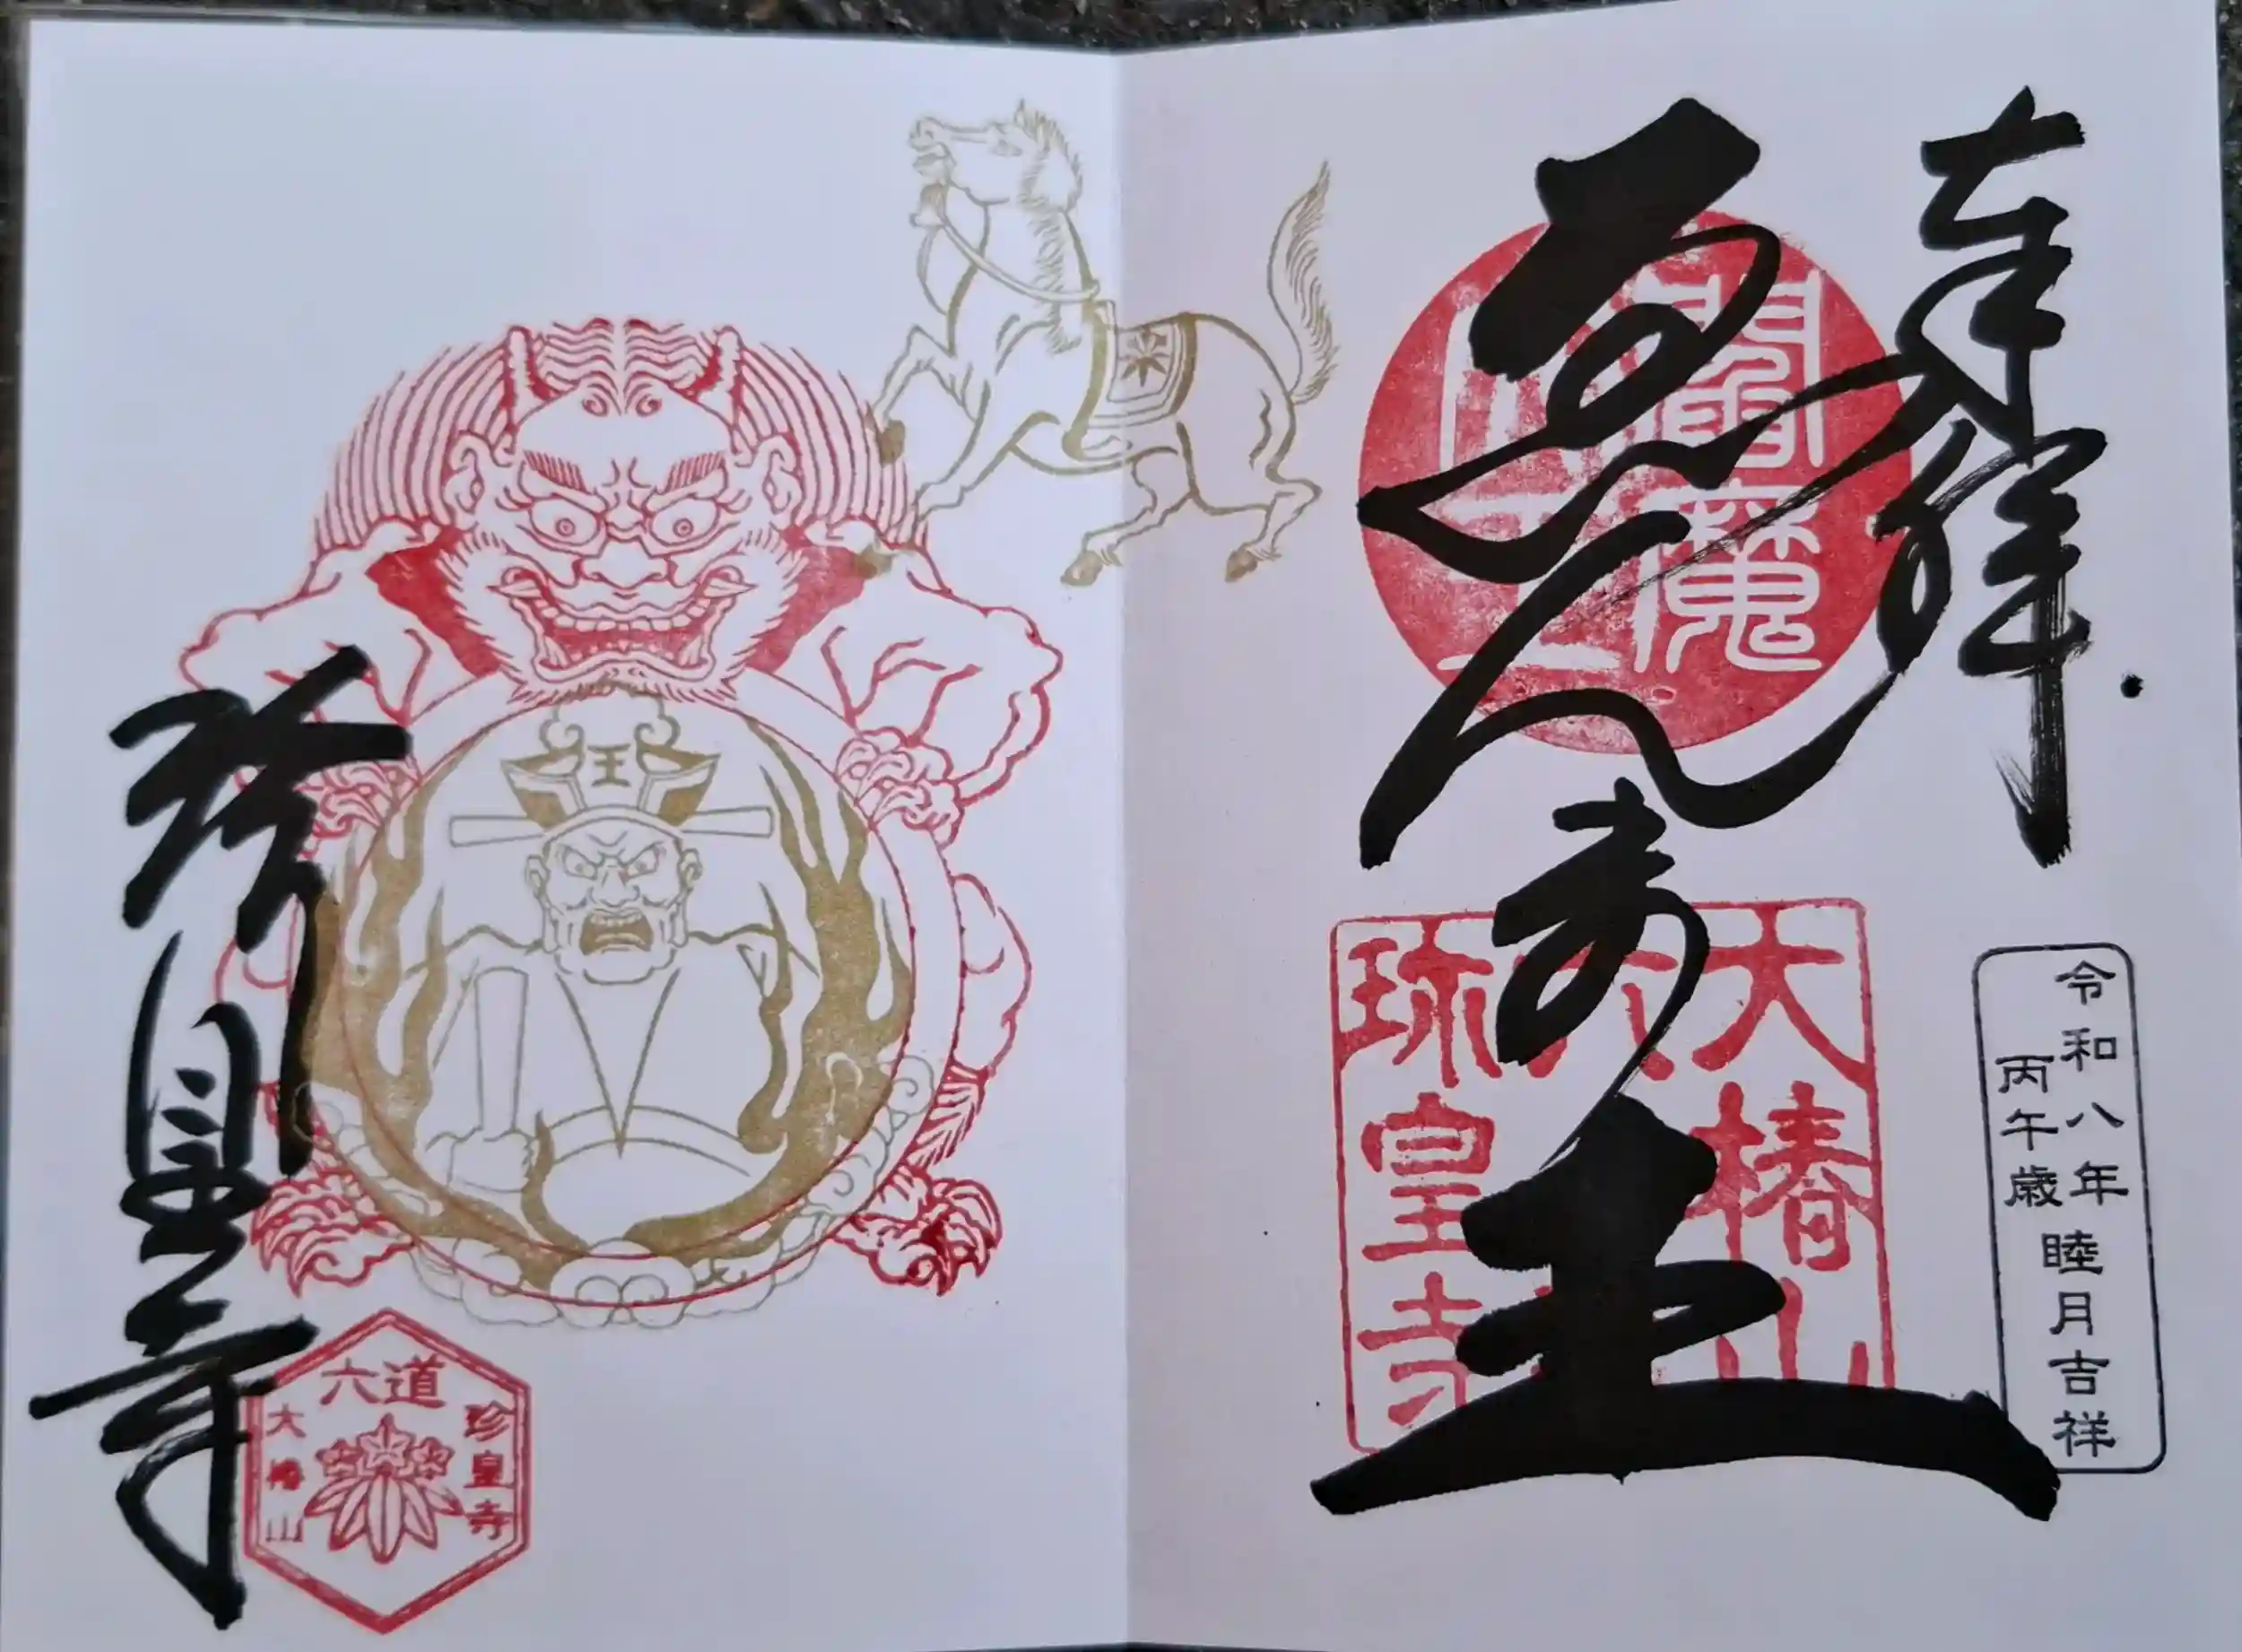 奉拝
ゑんま王
閻魔
大椿山
六
珎皇寺
令和八年
丙午歳
睦月吉祥
王
珍皇寺
六道
珍皇寺
大椿山